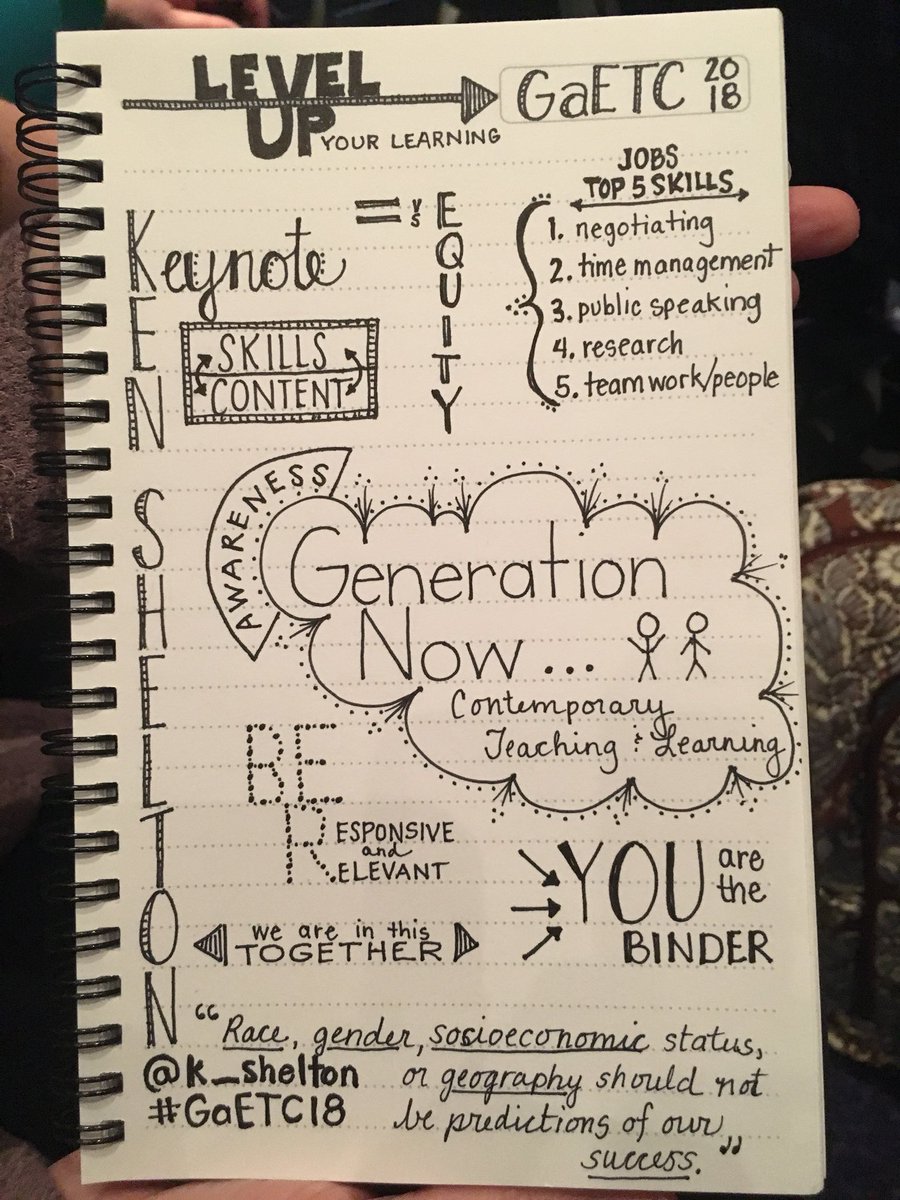 LEVEL
UP YOUR LEARNING
GaETC 2018
Keynote
KEN SHELTON
= vs EQUITY
JOBS
TOP 5 SKILLS
1. negotiating
2. time management
3. public speaking
4. research
5. teamwork/people
SKILLS
CONTENT
AWARENESS
Generation
Now...
Contemporary
Teaching & Learning
BE
RESPONSIVE
and
RELEVANT
YOU are
the
BINDER
we are in this
TOGETHER
"Race, gender, socioeconomic status,
or geography should not
be predictions of our
success."
@k_shelton
#GaETC18